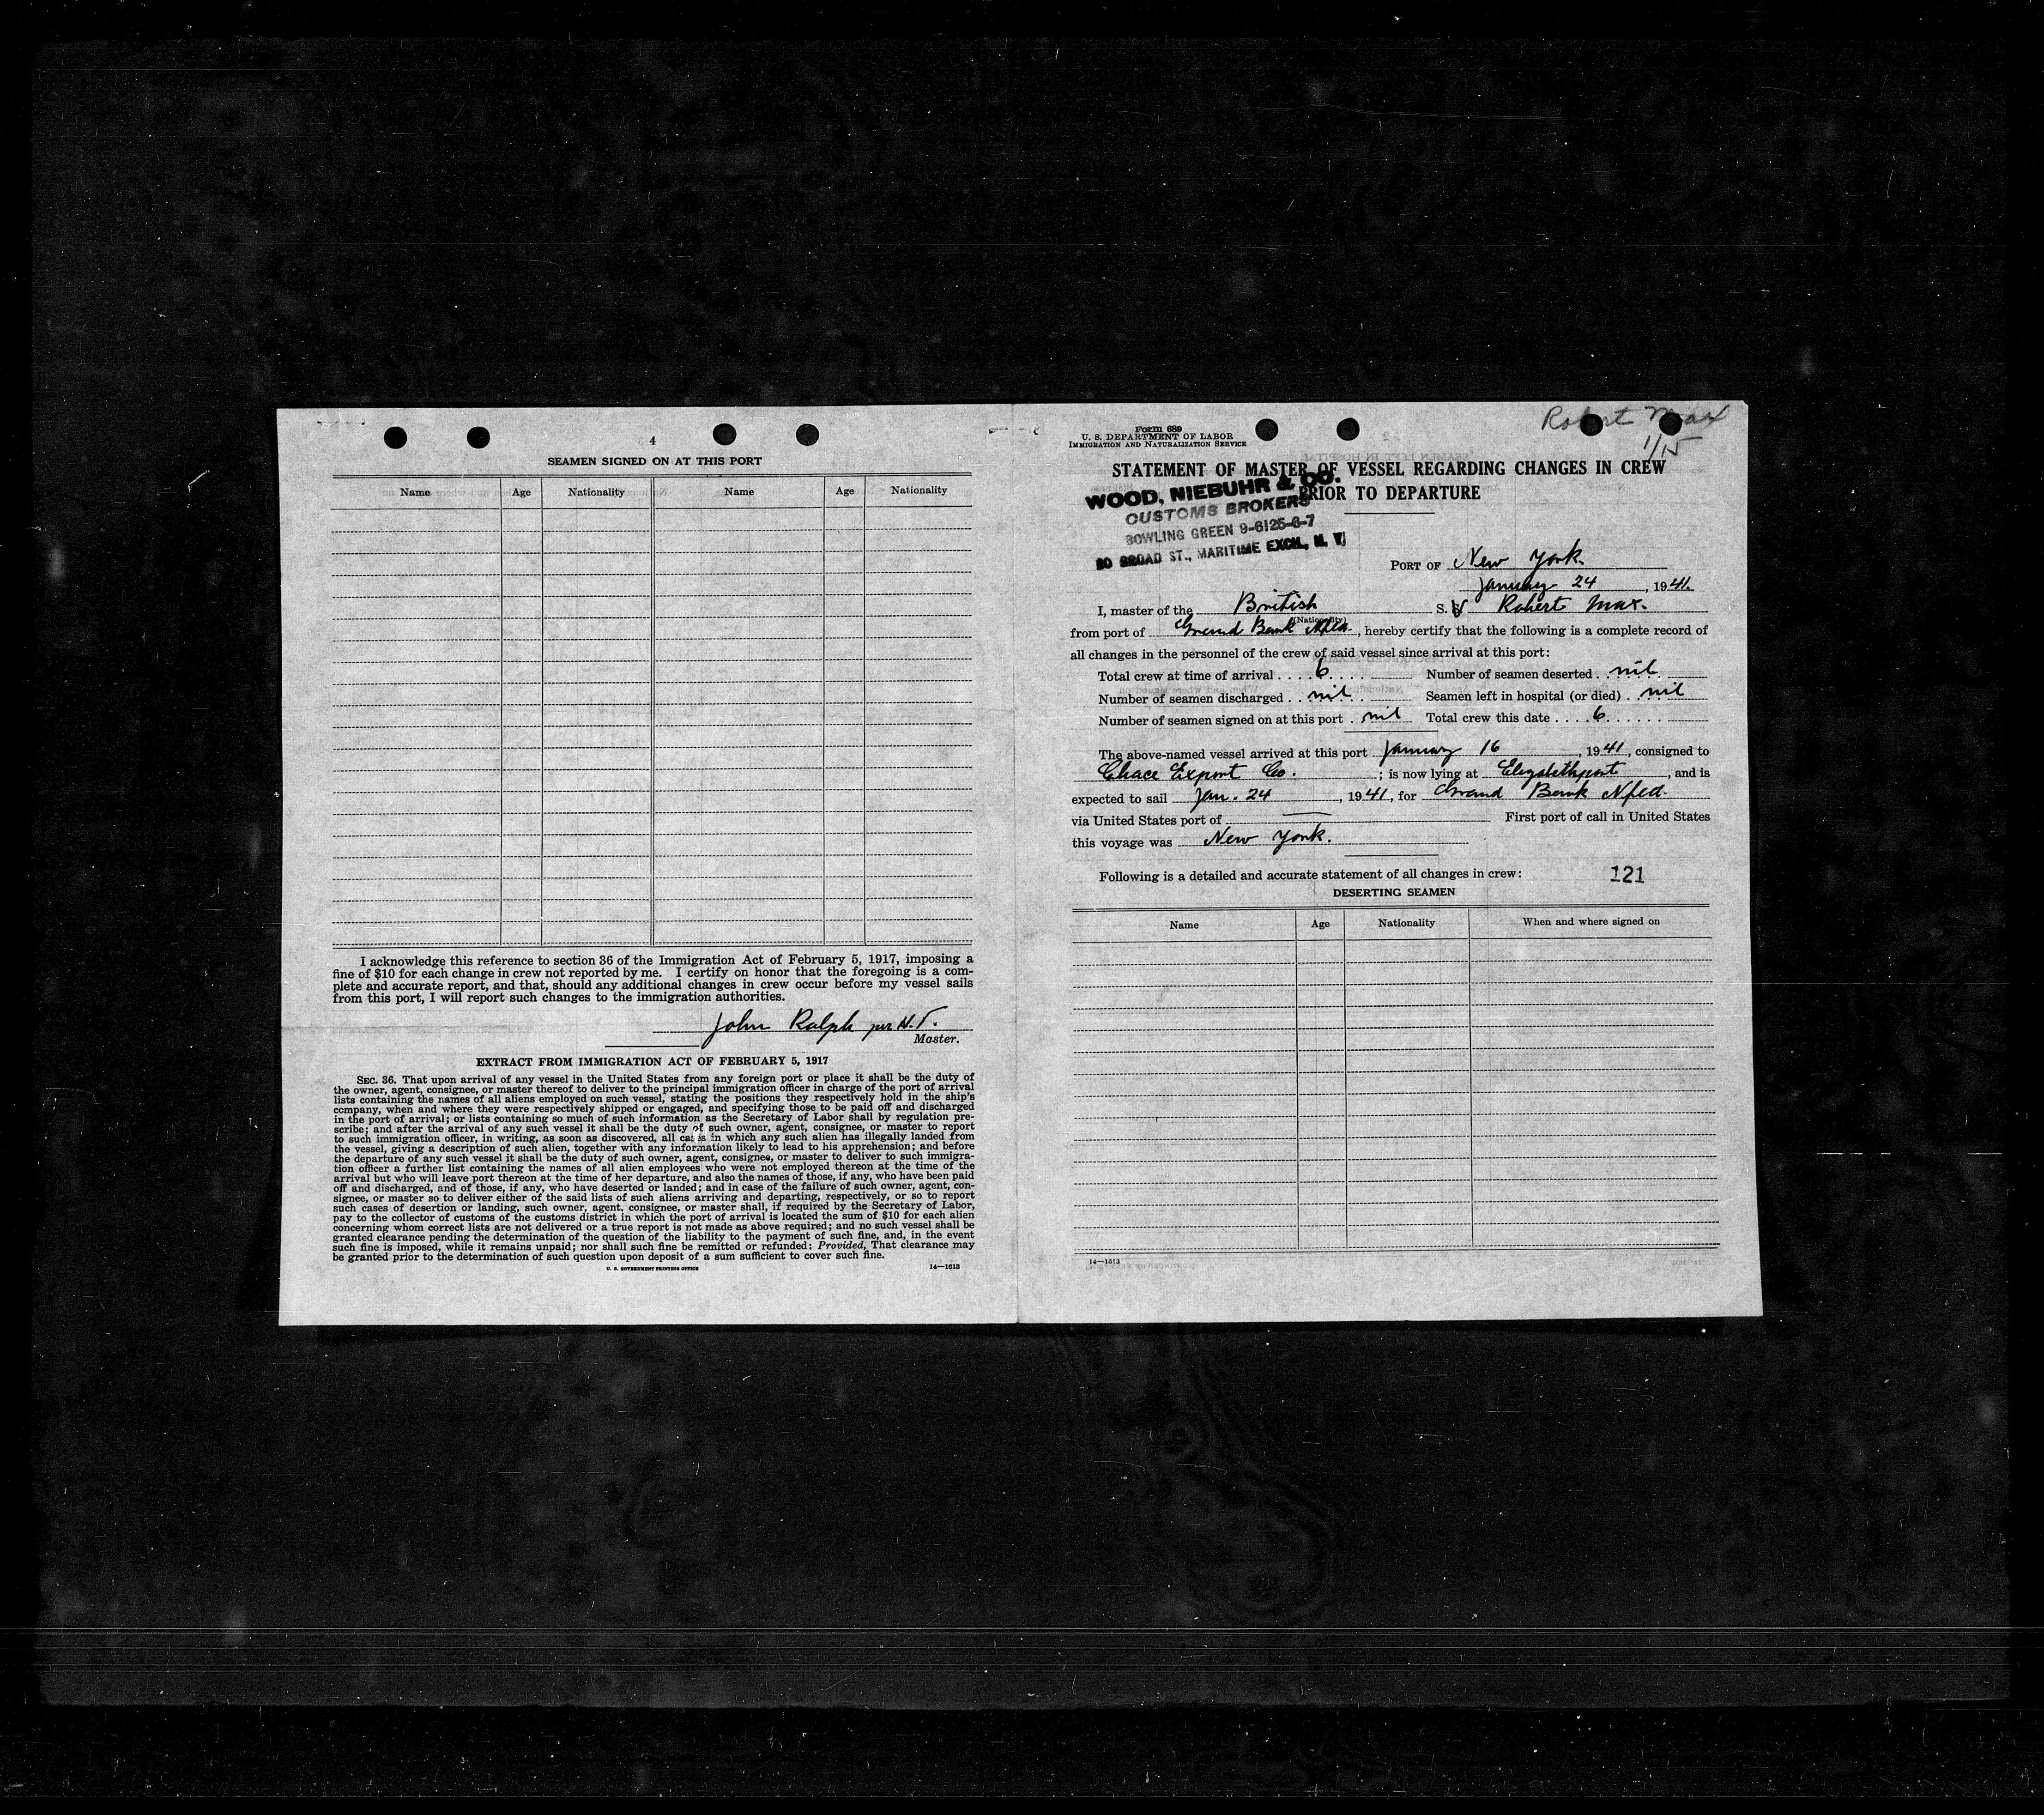 4
SEAMEN SIGNED ON AT THIS PORT
Name Age Nationality Name Age Nationality
I acknowledge this reference to section 36 of the Immigration Act of February 5, 1917, imposing a
fine of $10 for each change in crew not reported by me. I certify on honor that the foregoing is a com-
plete and accurate report, and that, should any additional changes in crew occur before my vessel sails
from this port, I will report such changes to the immigration authorities.
John Ralph per N.T.
Master.
EXTRACT FROM IMMIGRATION ACT OF FEBRUARY 5, 1917
SEC. 36. That upon arrival of any vessel in the United States from any foreign port or place it shall be the duty of
the owner, agent, consignee, or master thereof to deliver to the principal immigration officer in charge of the port of arrival
lists containing the names of all aliens employed on such vessel, stating the positions they respectively hold in the ship's
company, when and where they were respectively shipped or engaged, and specifying those to be paid off and discharged
in the port of arrival; or lists containing so much of such information as the Secretary of Labor shall by regulation pre-
scribe; and after the arrival of any such vessel it shall be the duty of such owner, agent, consignee, or master to report
to such immigration officer, in writing, as soon as discovered, all cases in which any such alien has illegally landed from
the vessel, giving a description of such alien, together with any information likely to lead to his apprehension; and before
the departure of any such vessel it shall be the duty of such owner, agent, consignee, or master to deliver to such immigra-
tion officer a further list containing the names of all alien employees who were not employed thereon at the time of the
arrival but who will leave port thereon at the time of her departure, and also the names of those, if any, who have been paid
off and discharged, and of those, if any, who have deserted or landed; and in case of the failure of such owner, agent, con-
signee, or master so to deliver either of the said lists of such aliens arriving and departing, respectively, or so to report
such cases of desertion or landing, such owner, agent, consignee, or master shall, if required by the Secretary of Labor,
pay to the collector of customs of the customs district in which the port of arrival is located the sum of $10 for each alien
concerning whom correct lists are not delivered or a true report is not made as above required; and no such vessel shall be
granted clearance pending the determination of the question of the liability to the payment of such fine, and, in the event
such fine is imposed, while it remains unpaid; nor shall such fine be remitted or refunded: Provided, That clearance may
be granted prior to the determination of such question upon deposit of a sum sufficient to cover such fine.
U. S. GOVERNMENT PRINTING OFFICE 14—1613
Robert Max
1/15
Form 689
U. S. DEPARTMENT OF LABOR
IMMIGRATION AND NATURALIZATION SERVICE
STATEMENT OF MASTER OF VESSEL REGARDING CHANGES IN CREW
PRIOR TO DEPARTURE
WOOD, NIEBUHR & CO.
CUSTOMS BROKERS
BOWLING GREEN 9-6125-6-7
80 BROAD ST., MARITIME EXCH., N. Y.
PORT OF New York
January 24, 1941.
I, master of the British S. V Robert Max.
(Nationality)
from port of Grand Bank Nfld., hereby certify that the following is a complete record of
all changes in the personnel of the crew of said vessel since arrival at this port:
Total crew at time of arrival . . . . 6 . . . . Number of seamen deserted . . nil
Number of seamen discharged . . nil . . Seamen left in hospital (or died) . nil
Number of seamen signed on at this port . nil Total crew this date . . . . 6 . . . . . .
The above-named vessel arrived at this port January 16, 1941, consigned to
Chace Export Co. ; is now lying at Elizabethport, and is
expected to sail Jan. 24, 1941, for Grand Bank Nfld.
via United States port of — First port of call in United States
this voyage was New York.
Following is a detailed and accurate statement of all changes in crew: 121
DESERTING SEAMEN
Name Age Nationality When and where signed on
14—1613